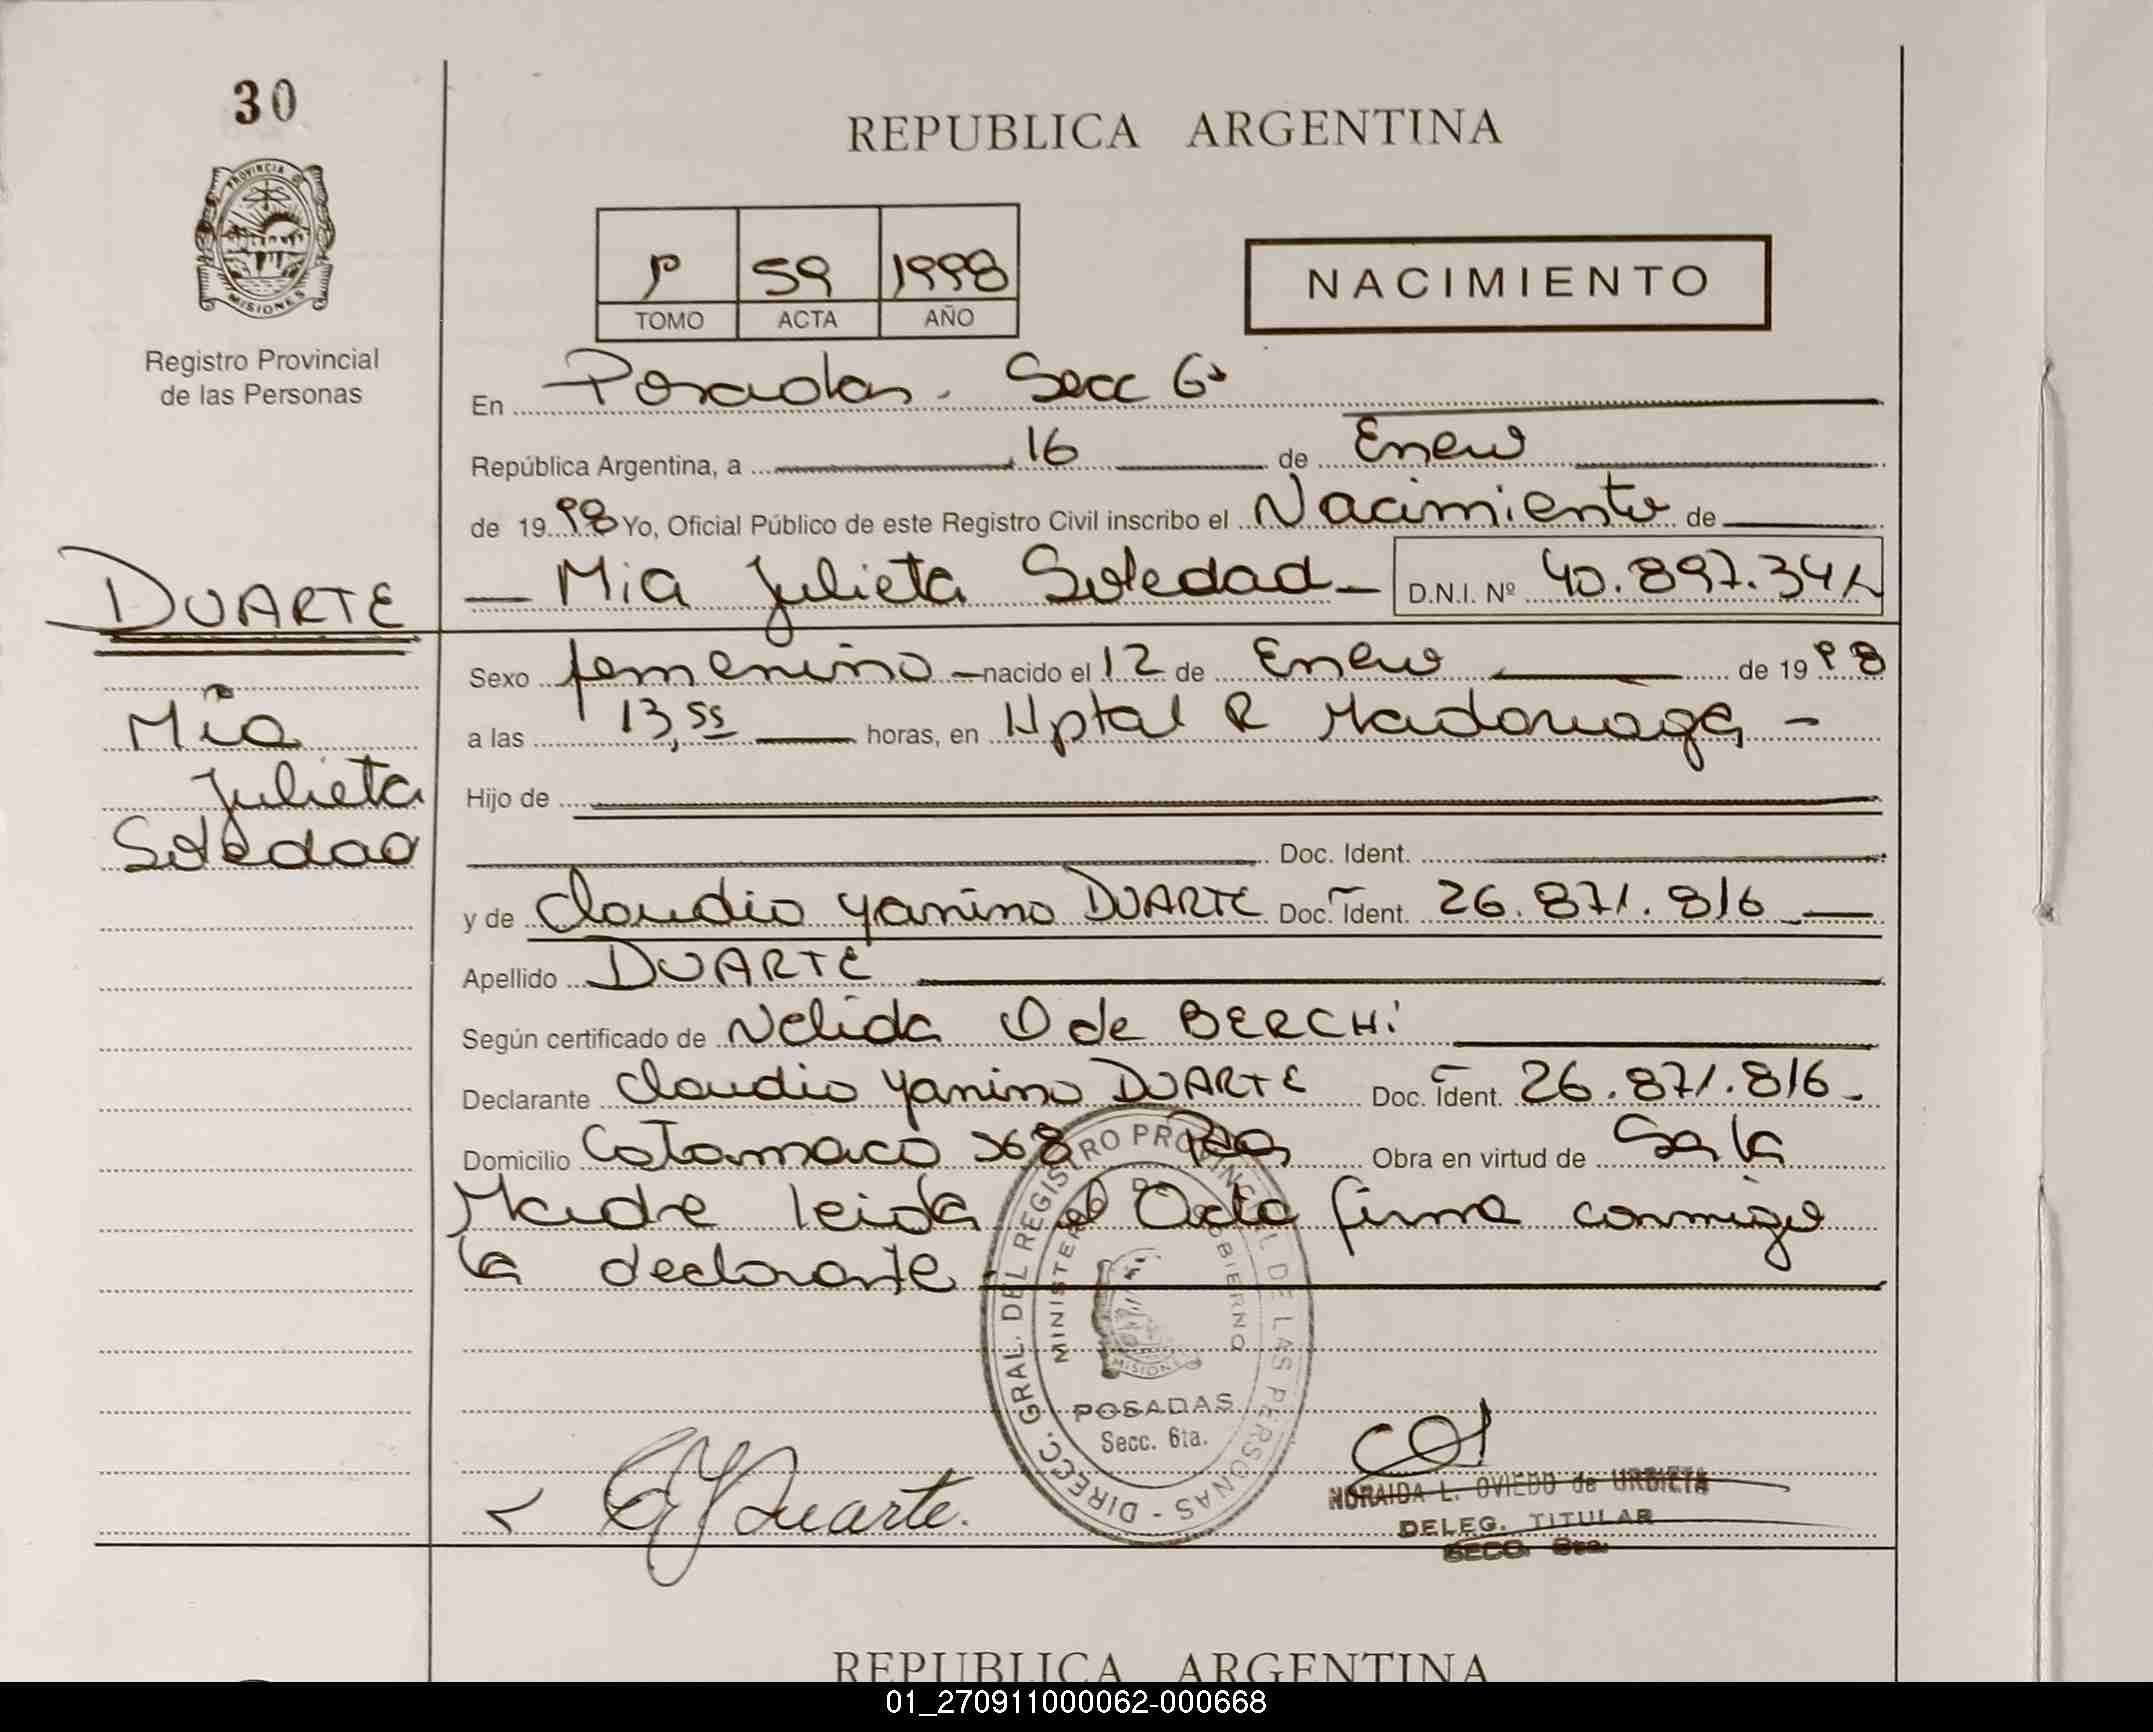 30
PROVINCIA DE
MISIONES
Registro Provincial
de las Personas
REPUBLICA ARGENTINA
P 59 1998
TOMO ACTA AÑO
NACIMIENTO
En Posadas. Secc 6a
República Argentina, a 16 de Enero
de 1998 Yo, Oficial Público de este Registro Civil inscribo el Nacimiento de
DUARTE
Mia Julieta Soledad D.N.I. Nº 40.897.341
Sexo femenino nacido el 12 de Enero de 1998
Mia
Julieta
Soledad
a las 13,55 horas, en Hptal R Madariaga
Hijo de
Doc. Ident.
y de Claudia Yanina DUARTE Doc. Ident. 26.871.816
Apellido DUARTE
Según certificado de Nelida O de BERCHI
Declarante Claudia Yanina DUARTE Doc. Ident. 26.871.816
Domicilio Catamarca 368 Pdas Obra en virtud de Ser la
Madre leida el Acta firma conmigo
la declarante
DIRECC. GRAL. DEL REGISTRO PROVINCIAL DE LAS PERSONAS
MINISTERIO DE GOBIERNO
MISIONES
POSADAS
Secc. 6ta.
CY Duarte.
NORAIDA L. OVIEDO de URBIETA
DELEG. TITULAR
SECC. 6ta.
REPUBLICA ARGENTINA
01_270911000062-000668